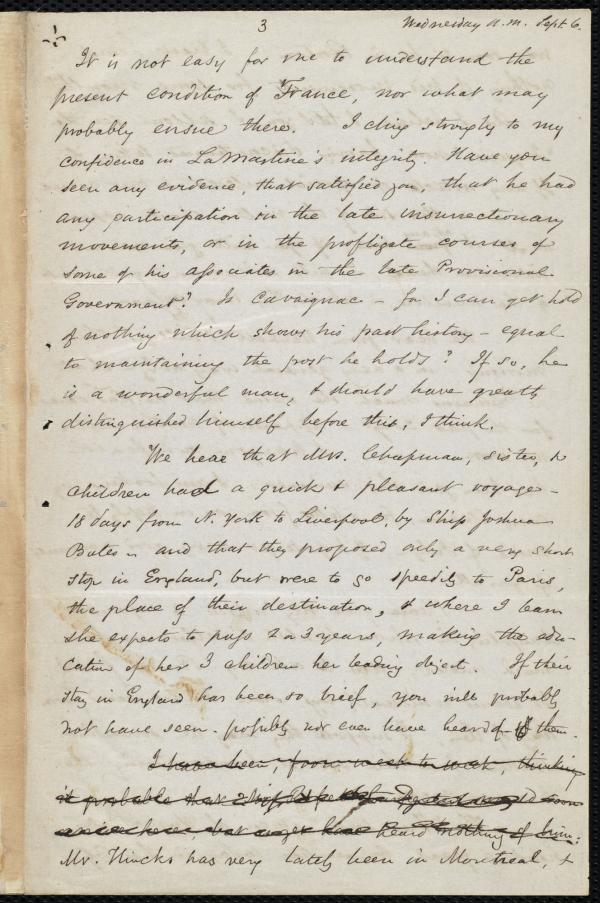 3 Wednesday a.m. Sept. 6.
It is not easy for me to understand the
present condition of France, nor what may
probably ensue there. I cling strongly to my
confidence in LaMartine's integrity. Have you
seen any evidence, that satisfied you, that he had
any participation in the late insurrectionary
movements, or in the profligate courses of
some of his associates in the late Provisional
Government? Is Cavaignac - for I can get hold
of nothing which shows his past history - equal
to maintaining the post he holds? If so, he
is a wonderful man, & should have greatly
distinguished himself before this, I think.
We hear that Mrs. Chapman, sister, &
children had a quick & pleasant voyage -
18 days from N. York to Liverpool, by Ship Joshua
Bates - and that they proposed only a very short
stop in England, but were to go speedily to Paris,
the place of their destination, & where I learn
she expects to pass 2 or 3 years, making the edu-
cation of her 3 children her leading object. If their
stay in England has been so brief, you will probably
not have seen - possibly not even have heard of - them.
I have been, from week to week, thinking
it probable that
heard nothing of him:
Mr. Hincks has very lately been in Montreal, &